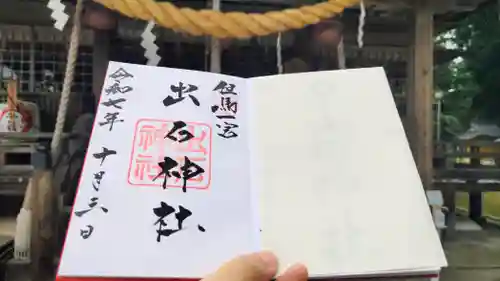 但馬一宮
出石神社
出石
神社
令和七年
十月三日